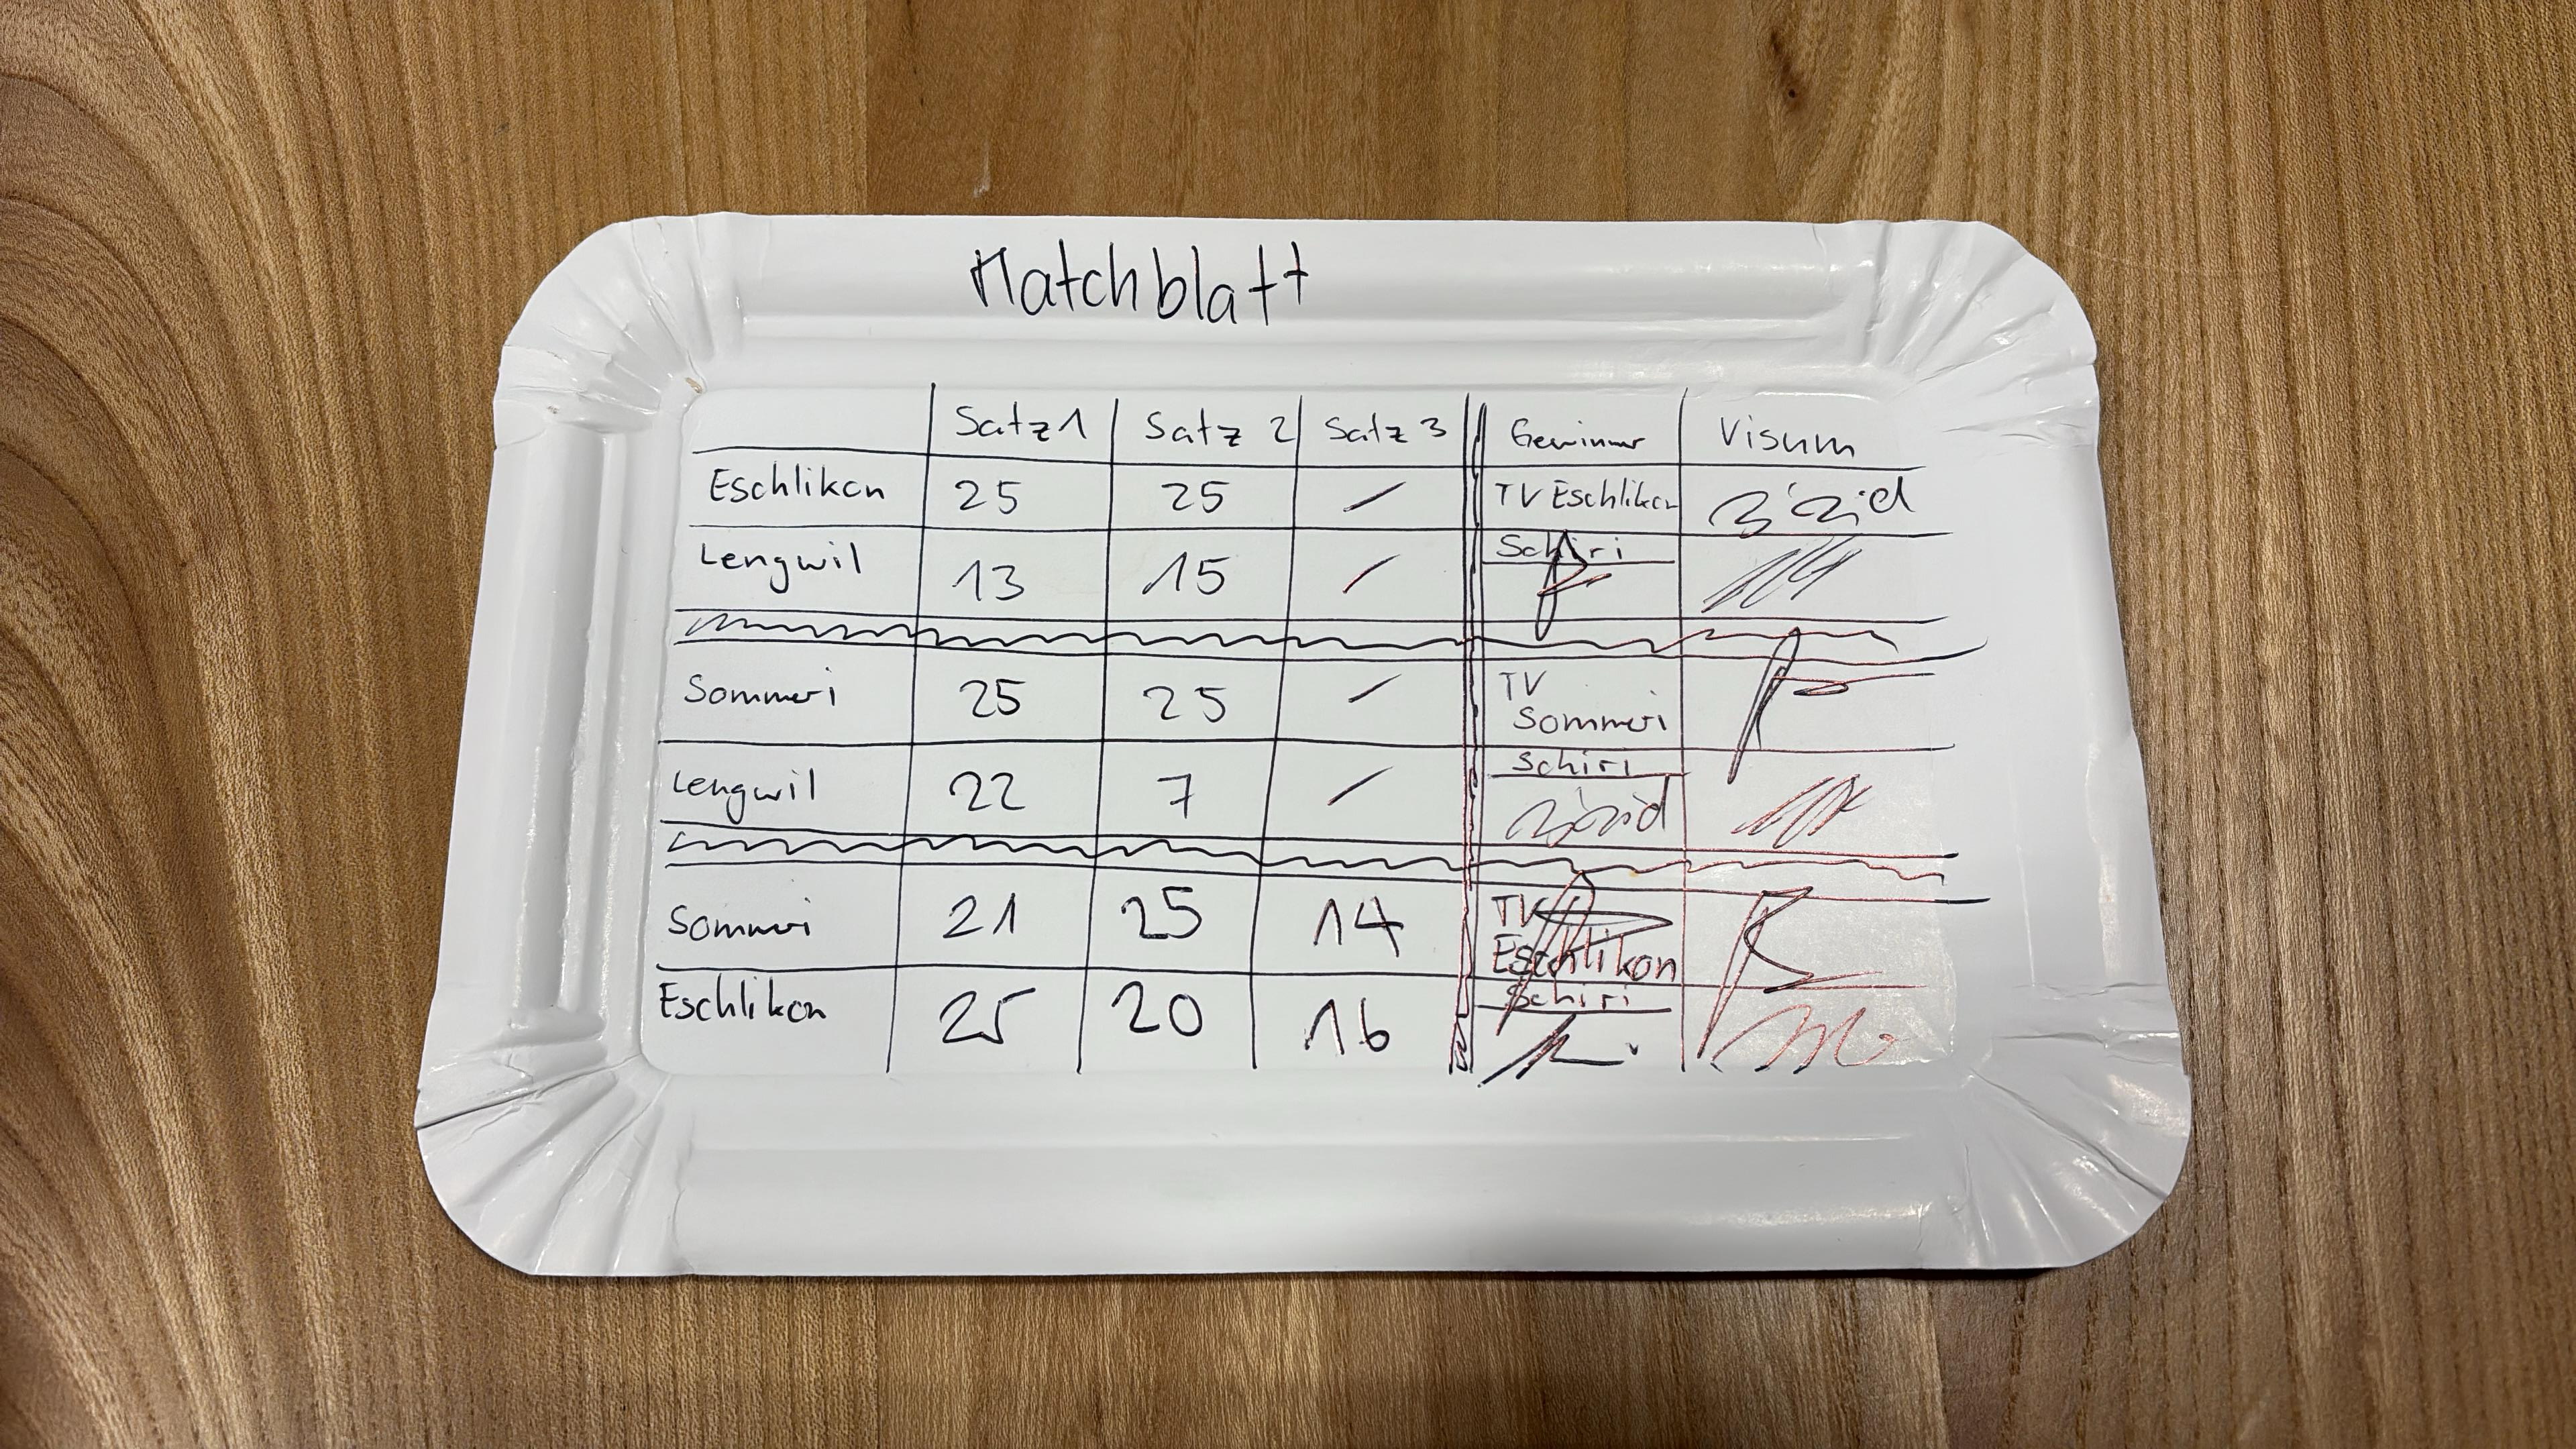 Matchblatt
Satz 1 Satz 2 Satz 3 Gewinner Visum
Eschlikon 25 25 / TV Eschlikon
Lengwil 13 15 / Schiri
Sommeri 25 25 / TV Sommeri
Lengwil 22 7 / Schiri
Sommeri 21 25 14 TV Eschlikon
Eschlikon 25 20 16 Schiri